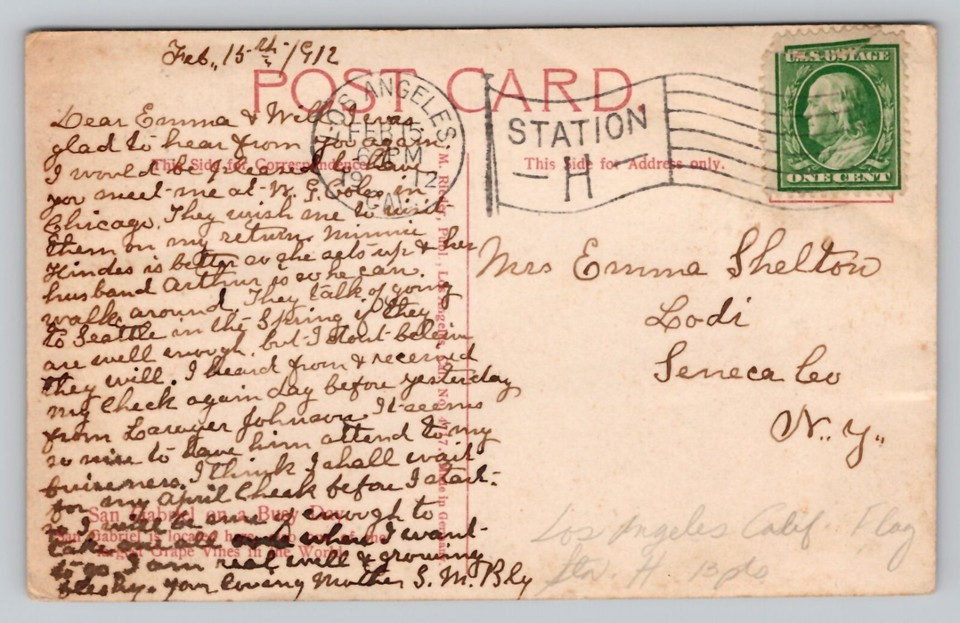 Feb., 15th, 1912
POST CARD
Dear Emma & Will I was
glad to hear from you again.
I would be pleased to have
you meet me at W. G. Coles in
Chicago. They wish me to visit
them on my return. Minnie
Hindes is better as she sets up & her
husband Arthur is so he can
walk around. They talk of going
to Seattle in the Spring if they
are well enough, but I dout beleiv
they will. I heard from & received
my check again day before yesterday
from Lawyer Johnson. It seems
so nice to have him attend to my
buiseness. I think I shall wait
for my April Check before I start
so I will be sure of enough to
take me where I want
to go. I am real well & growing
fleshy. your loving Mother S. M. Bly
This Side for Correspondence
LOS ANGELES
FEB 15
PM
CAL.
STATION
H
This Side for Address only.
U.S. POSTAGE
ONE CENT
M. Rieder, Publ., Los Angeles, Cal. No. Made in Germany
Mrs Emma Shelton
Lodi
Seneca Co
N. Y.
San Gabriel on a Busy Day.
San Gabriel is located
largest Grape Vines in the World.
Los Angeles Calif. Flag
Sta. H